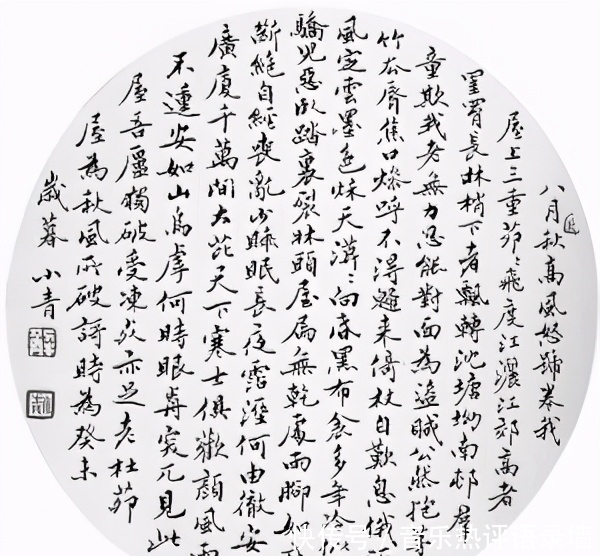 八月秋高風怒號卷我
屋上三重茅〻飛度江灑江郊高者
罥長林梢下者飄轉沈塘坳南邨羣
童欺我老無力忍能對面為盜賊公然抱
竹去脣焦口燥呼不得歸來倚杖自歎息俄
風定雲墨色秋天漠〻向昏黑布衾多年冷似
驕兒惡臥踏裏裂牀頭屋屚無乾處雨腳如
斷絕自經喪亂少睡眠長夜霑溼何由徹安
廣廈千萬間大庇天下寒士俱歡顏風雨
不動安如山烏虖何時眼前突兀見此
屋吾廬獨破受凍死亦足老杜茅
屋為秋風所破詩時為癸未
歲暮小青